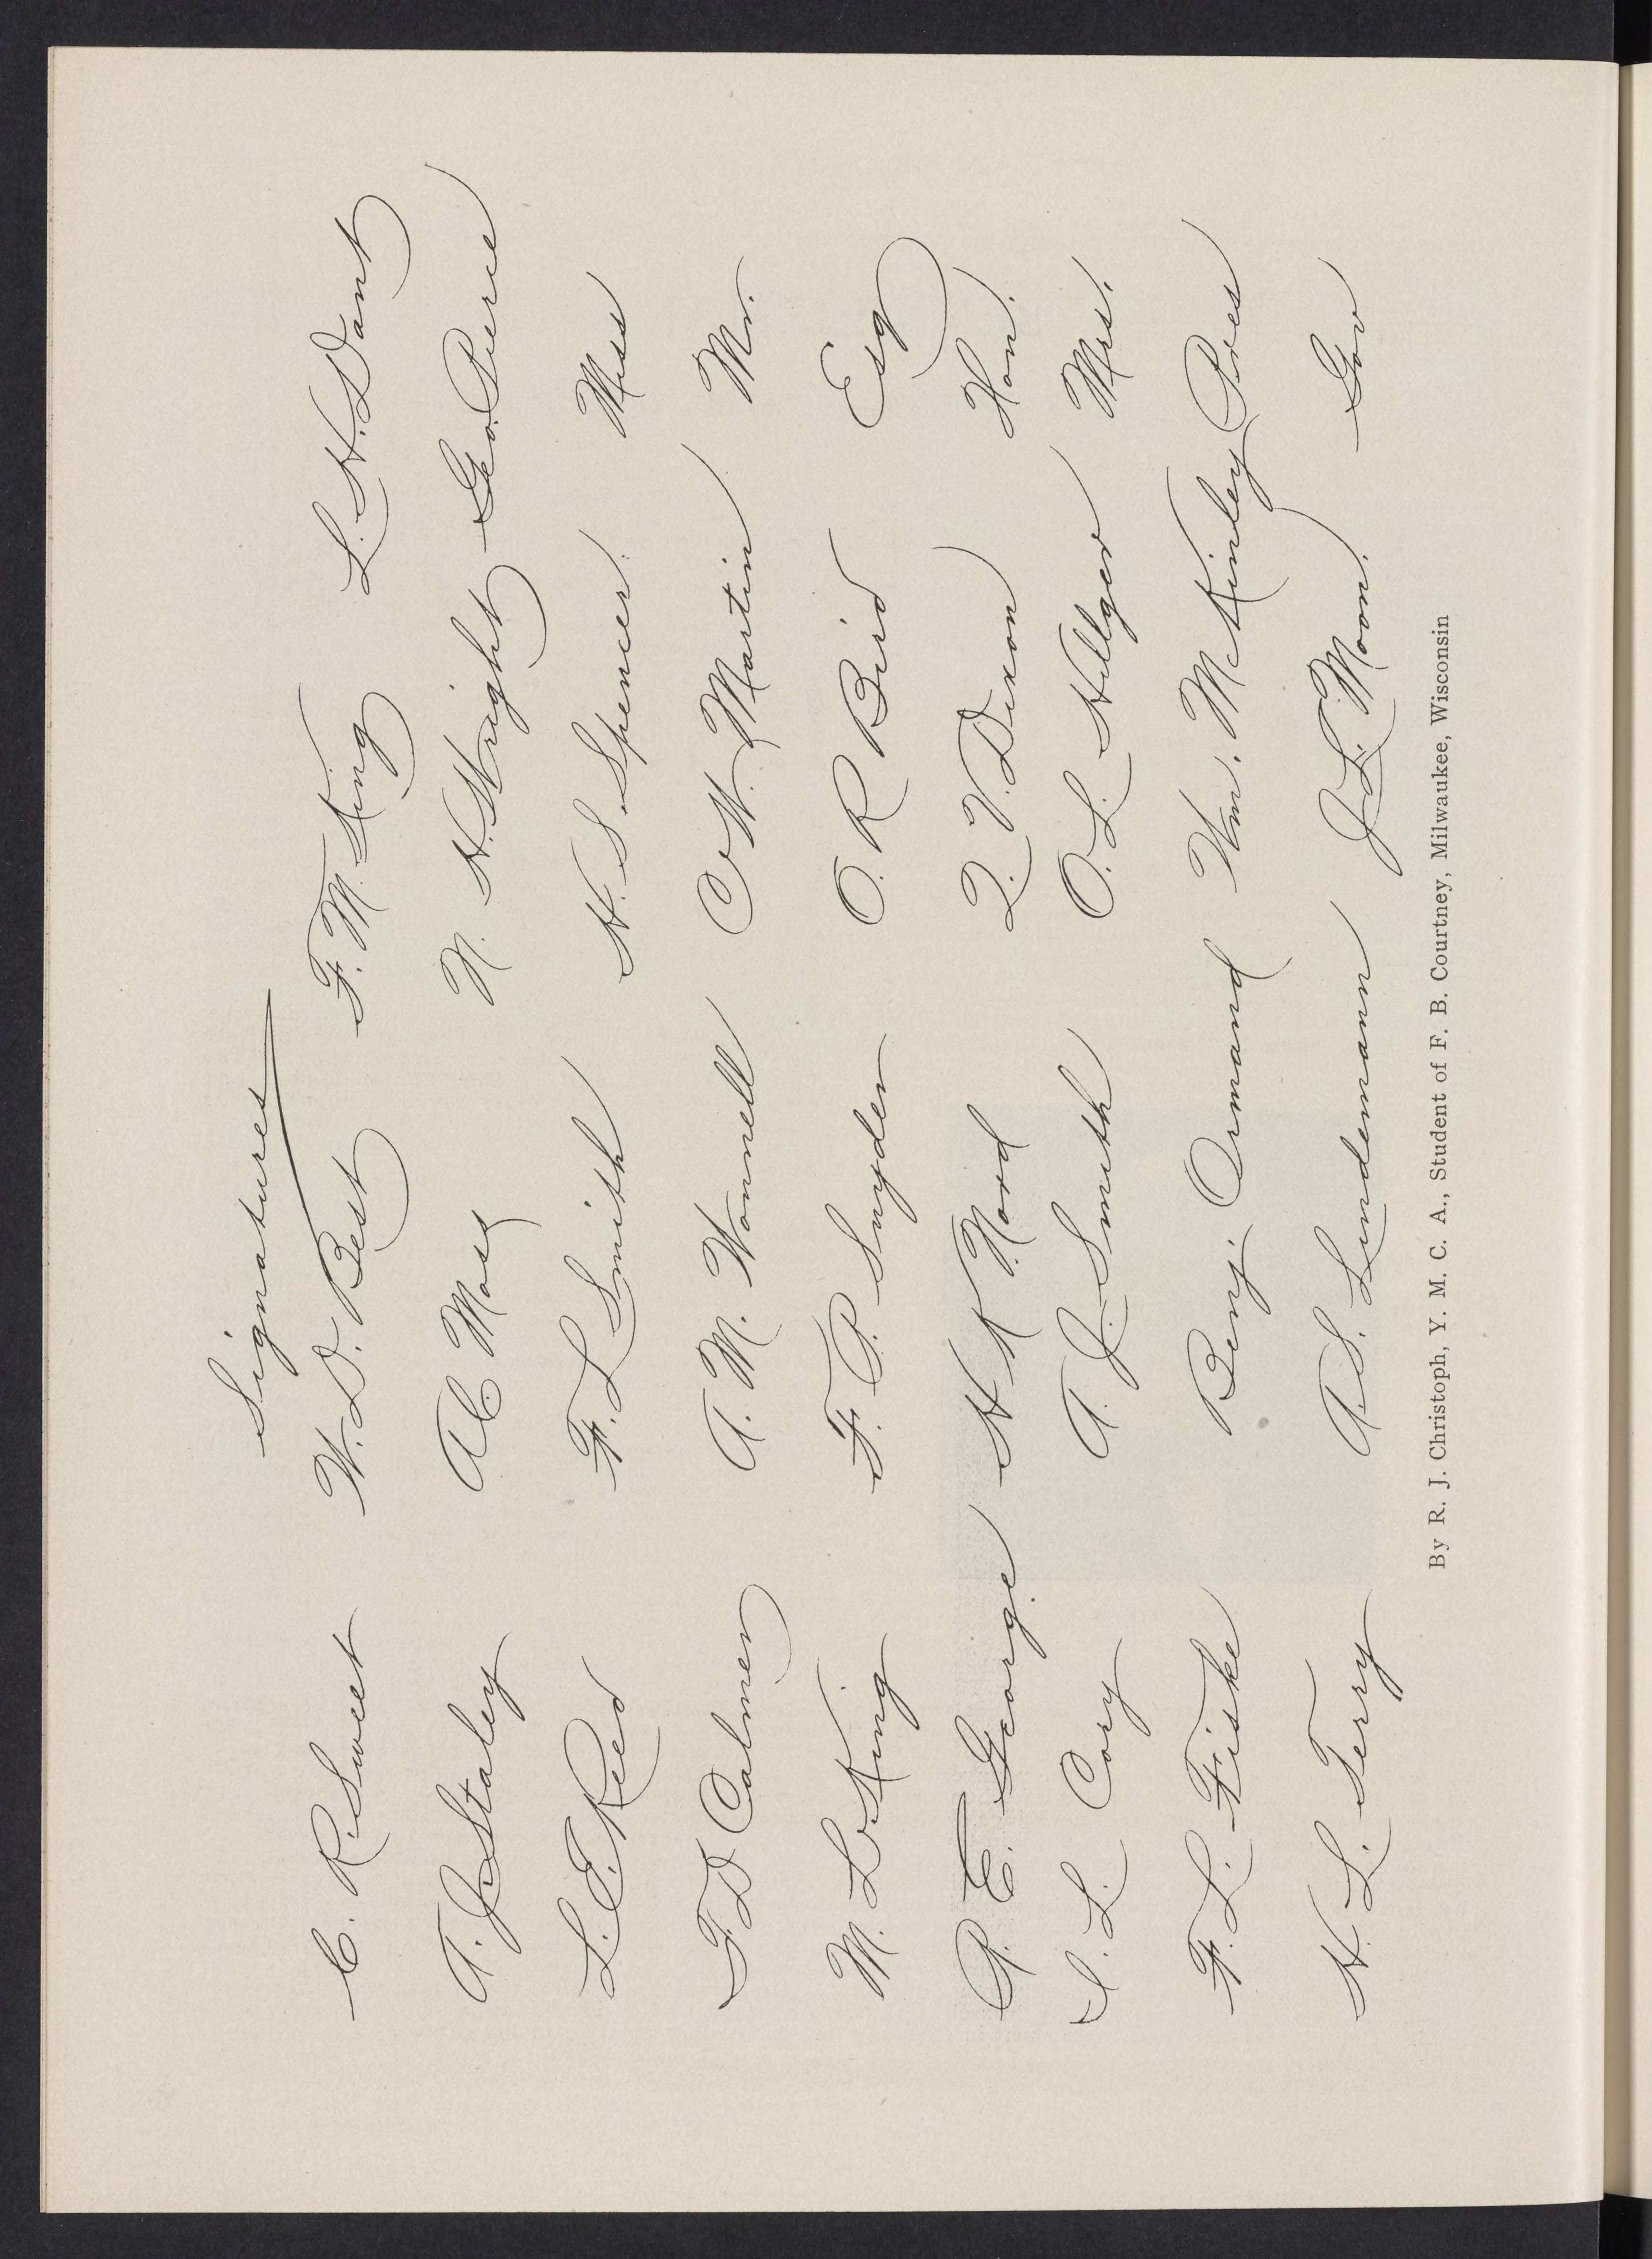 Signatures
C. R. Sweet W. D. Best F. M. King L. H. Dant
A. J. Staley A C Moss N. H. Wright Geo. Pierce
L. E. Reed F. L Smith H. S. Spencer. Miss
F. D Calmer A. M. Wonnell C W. Martin Mr.
M. L. King F. P. Snyder O. R Bird Esq
R. E. George H K Nord Q. V. Dixon Hon.
I. L. Cory A. J. Smith O. L. Hillger Mrs.
F. L. Fiske Benj. Ormand Wm. McKinley Pres
H. L. Terry A S. Lundemann J. L. Moon. Gov
By R. J. Christoph, Y. M. C. A., Student of F. B. Courtney, Milwaukee, Wisconsin